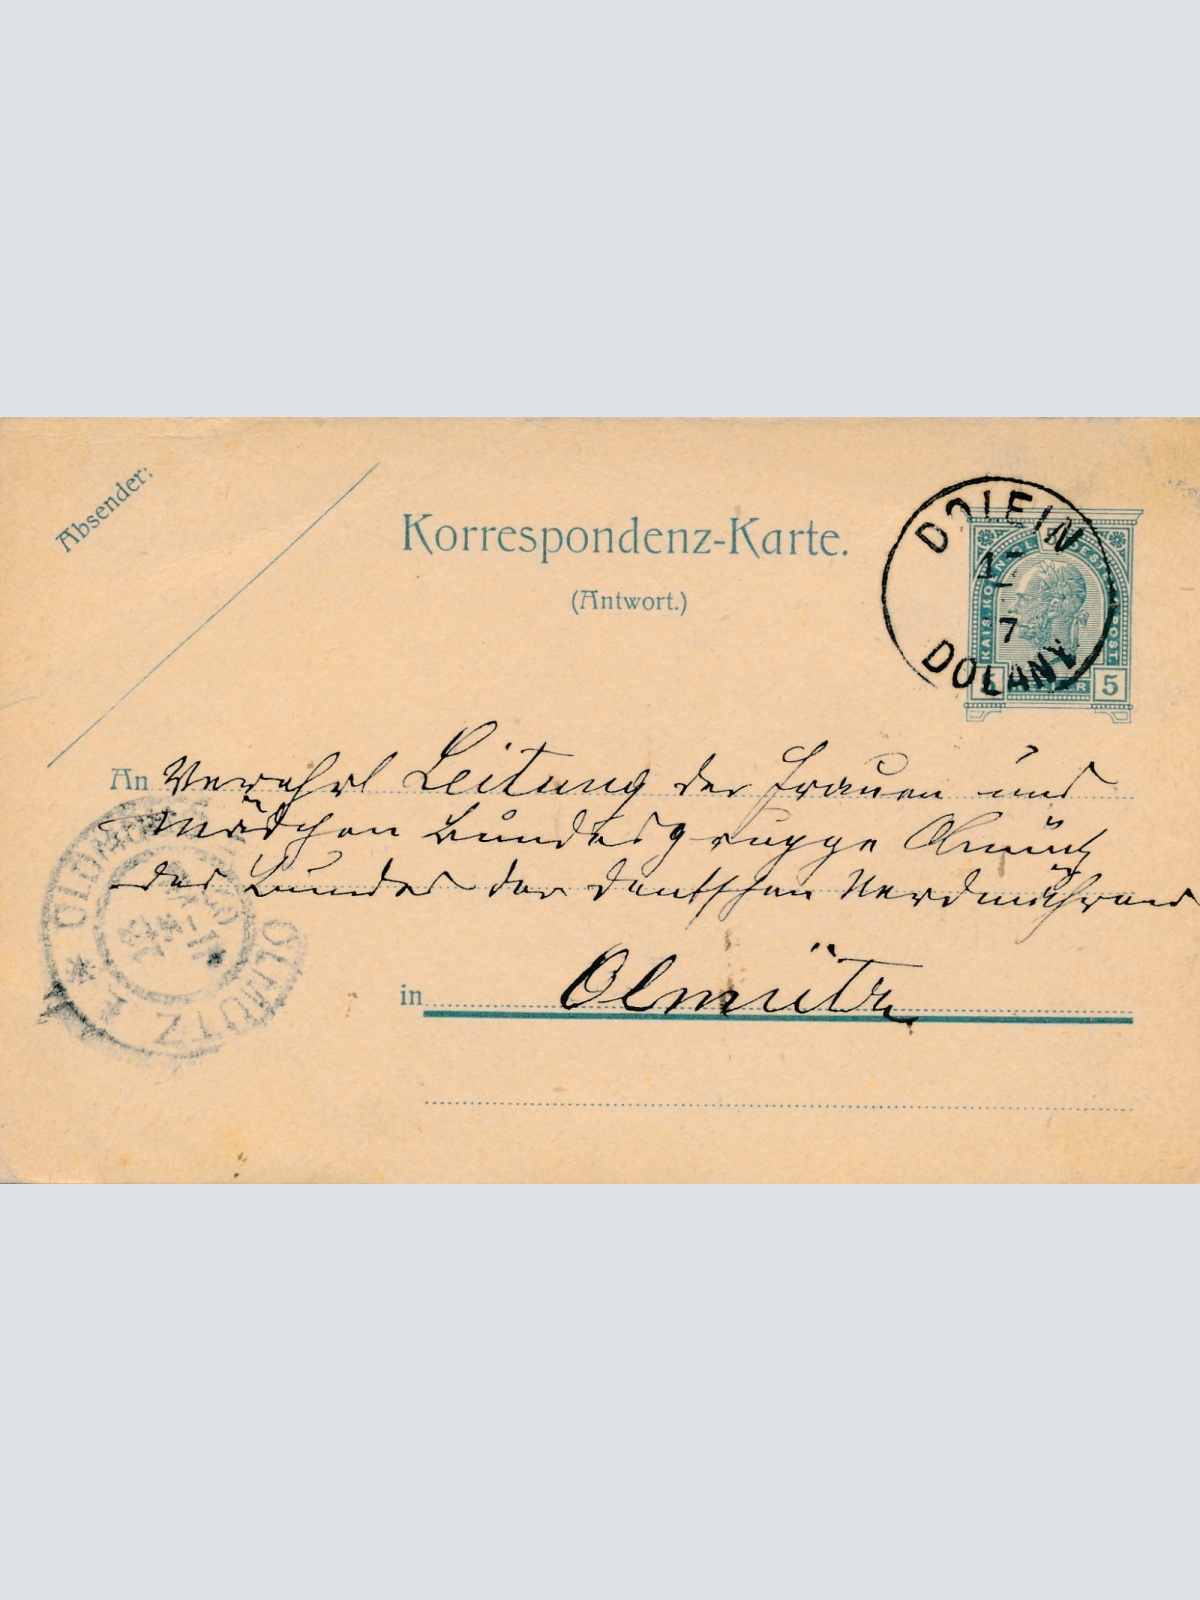 Absender:
Korrespondenz-Karte.
(Antwort.)
DOLEIN
7
DOLANY
KAIS. KÖNIGL. ÖSTERR. POST.
5 HELLER 5
An Verehrl Leitung der Frauen und
Mädchen Bundesgruppe Olmütz
des Bundes der Deutschen Nordmährens
in Olmütz
OLMÜTZ